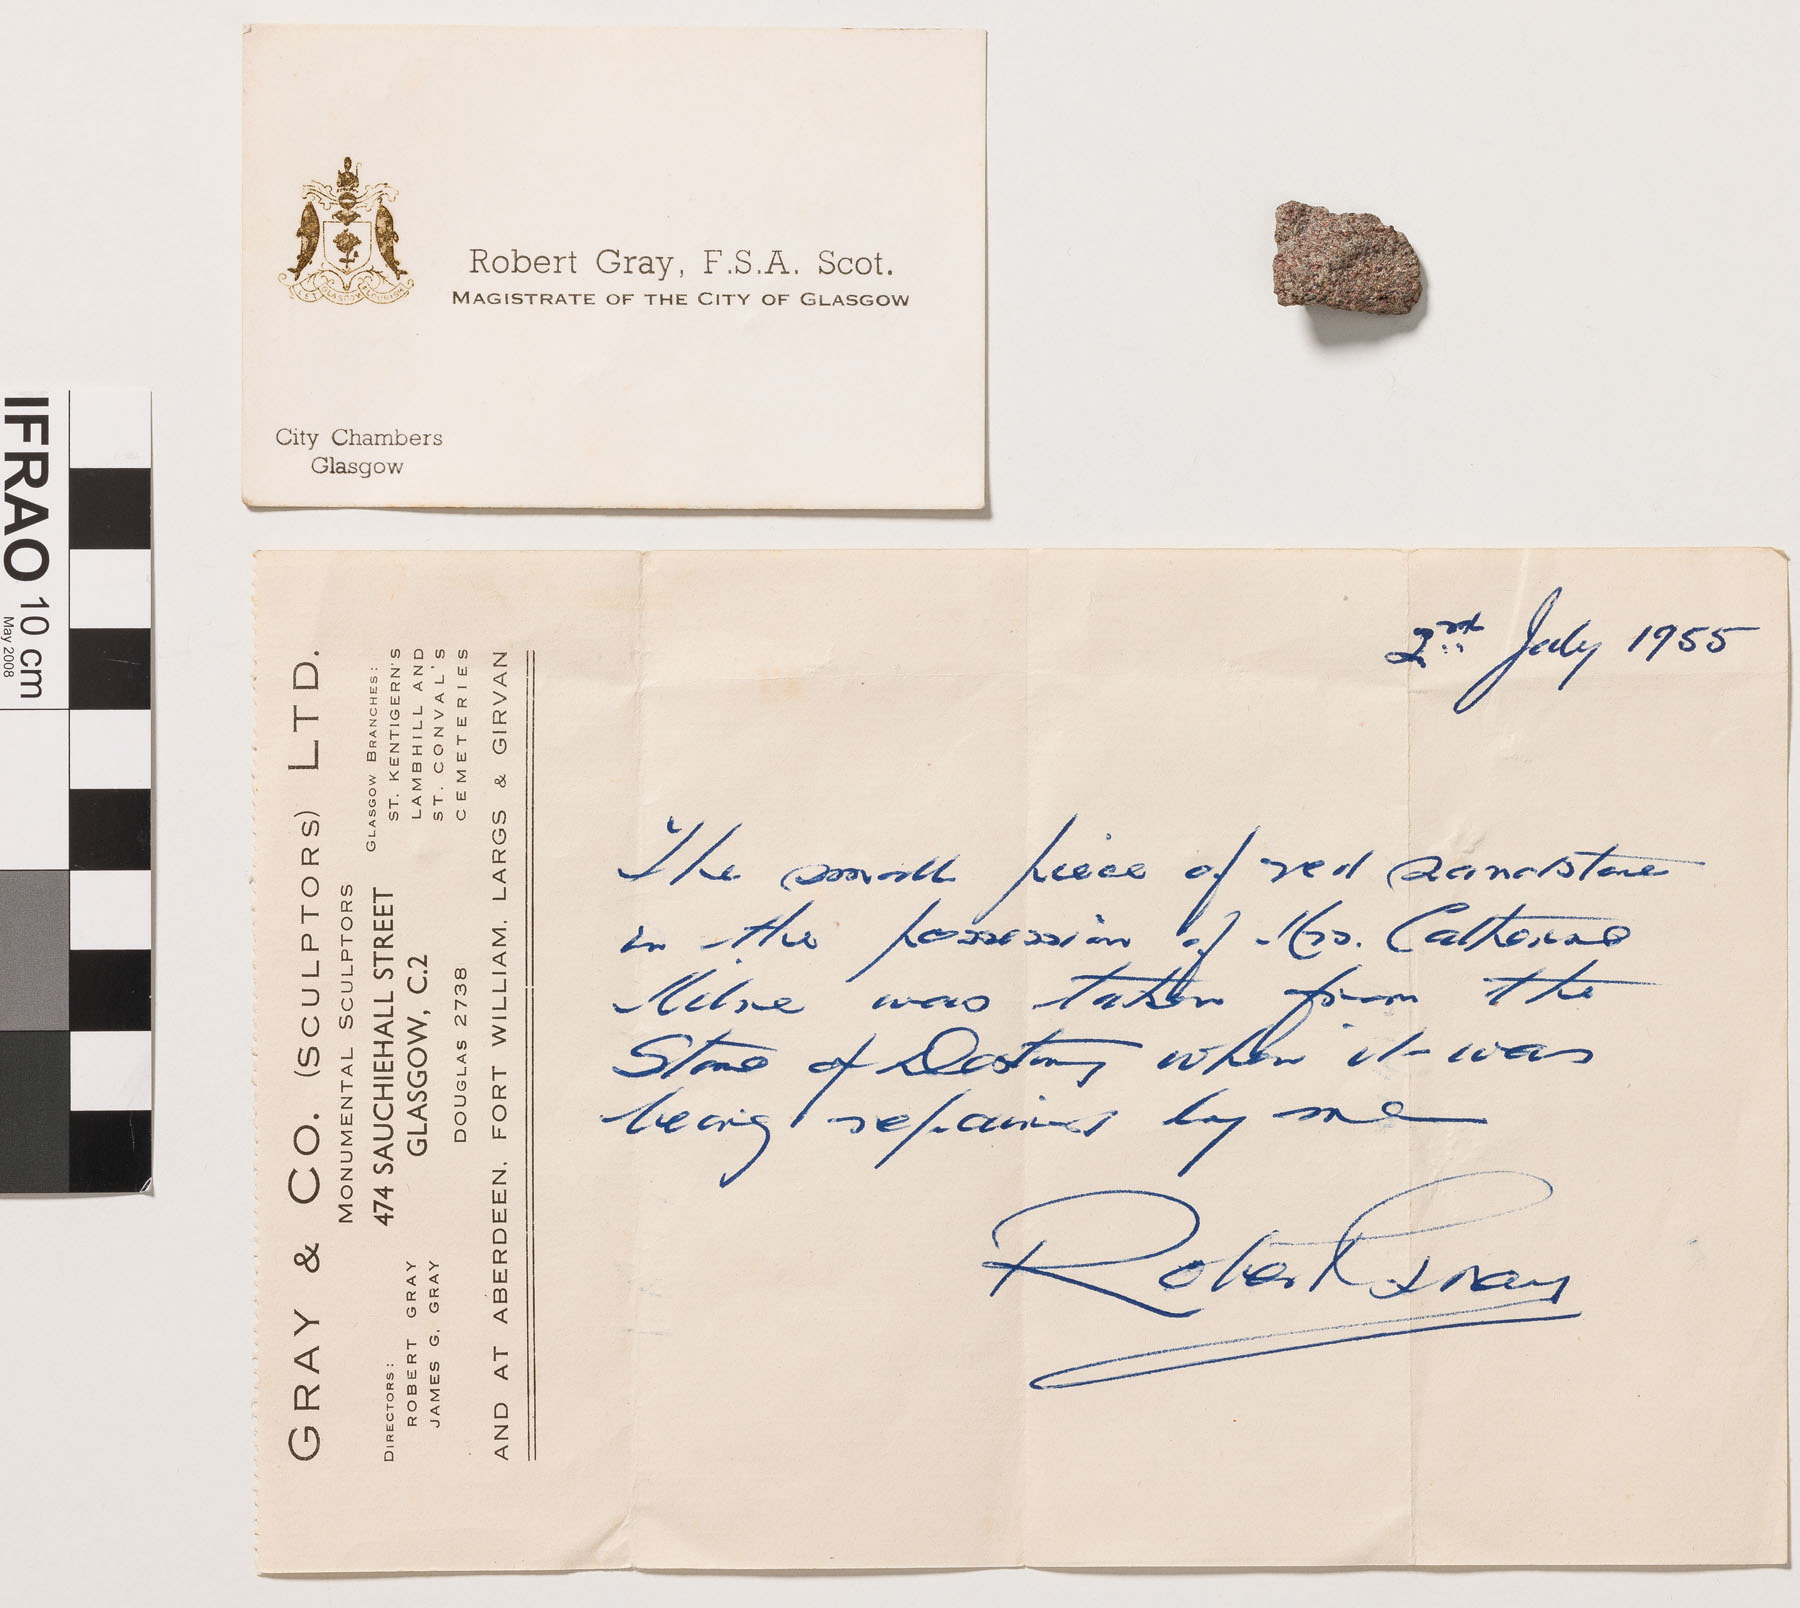 LET GLASGOW FLOURISH
Robert Gray, F.S.A. Scot.
MAGISTRATE OF THE CITY OF GLASGOW
City Chambers
Glasgow
IFRAO 10 cm
May 2008
GRAY & CO. (SCULPTORS) LTD.
MONUMENTAL SCULPTORS
474 SAUCHIEHALL STREET
GLASGOW, C.2
DOUGLAS 2738
GLASGOW BRANCHES:
ST. KENTIGERN'S
LAMBHILL AND
ST. CONVAL'S
CEMETERIES
DIRECTORS:
ROBERT GRAY
JAMES G. GRAY
AND AT ABERDEEN. FORT WILLIAM. LARGS & GIRVAN
2nd July 1955
The small piece of red sandstone
in the possession of Mrs. Catherine
Milne was taken from the
Stone of Destiny when it was
being repaired by me
Robert Gray